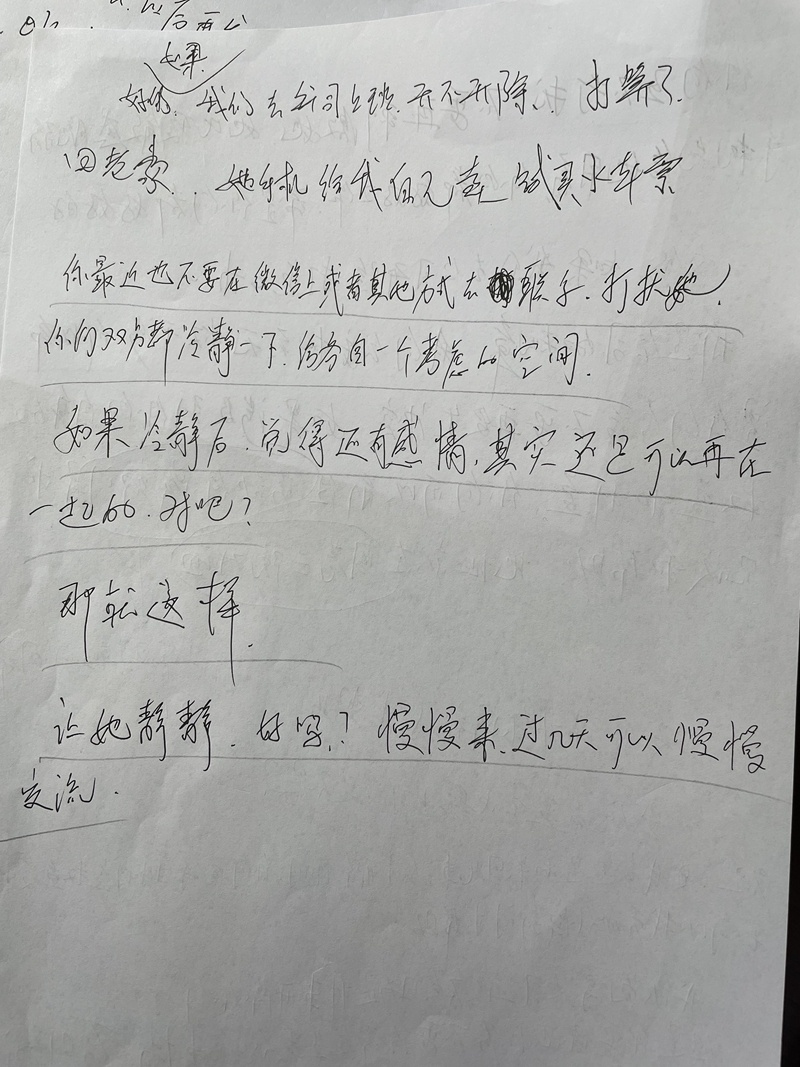 后两公
如果
好的. 我们去公司上班. 开不开除. 打算了.
回老家. 她手机给我 买火车票
你最近也不要在微信上或者其他方式去联系. 打扰她.
你们双方都冷静一下. 给各自一个考虑的空间.
如果冷静后. 觉得还有感情, 其实还是可以再在
一起的. 对吧?
那就这样.
让她静静. 好吗? 慢慢来. 过几天可以慢慢
交流.